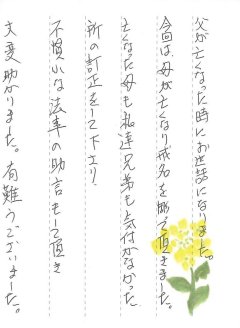 父が亡くなった時にお世話になりました。
今回は母が亡くなり戒名を彫って頂きました。
亡くなった母も私達兄弟も気付かなかった
所の訂正をして下さり、
不慣れな法事の助言もして頂き
大変助かりました。有難うございました。